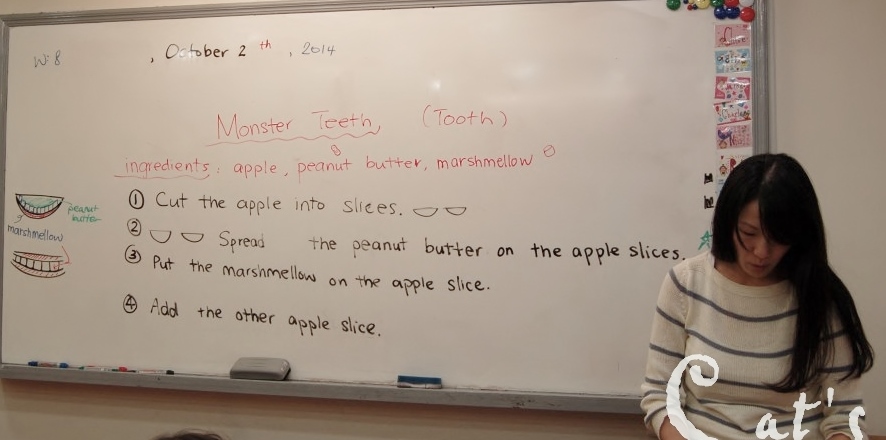 W: 8 , October 2 th , 2014
Monster Teeth, (Tooth)
ingredients: apple, peanut butter, marshmellow
① Cut the apple into slices.
② Spread the peanut butter on the apple slices.
③ Put the marshmellow on the apple slice.
④ Add the other apple slice.
peanut
butter
marshmellow
Cat's